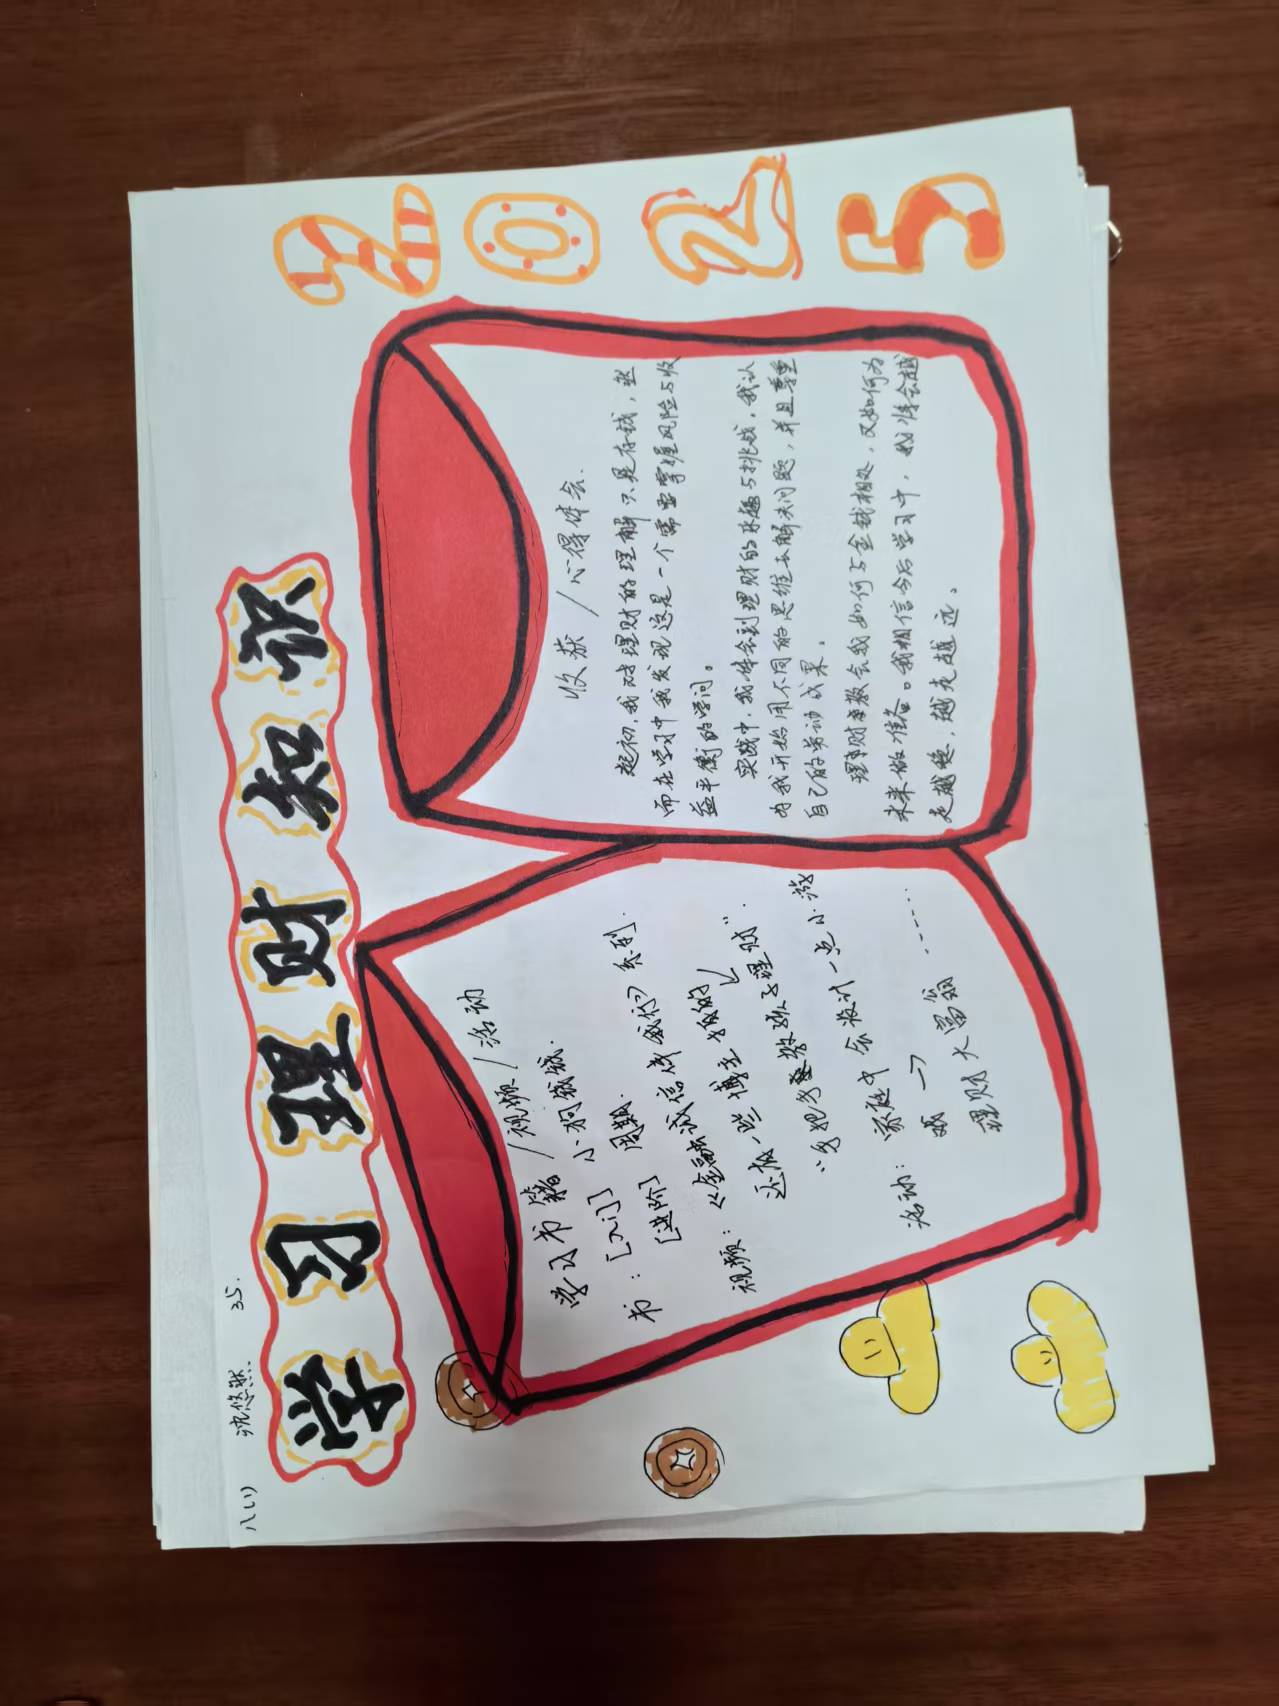 八(1) 沈悠然 35.
学习理财知识
2025
学习书籍/视频/活动
书:[入门] 小狗钱钱.
[进阶] 周期.
视频:《金融诚信伴我行》系列.
还有一些博主拍的↙
"如何教孩子理财".
活动:家庭中会设计一点小游
戏→
理财大富翁 ……
收获/心得体会.
起初,我对理财的理解只是存钱,然
而在学习中我发现这是一个需要掌握风险与收
益平衡的学问。
实践中,我体会到理财的乐趣与挑战,我认
为我开始用不同的思维去解决问题,并且尊重
自己的劳动成果。
理财教会我如何与金钱相处,又如何为
未来做准备。我相信今后学习中,我将会越
走越稳,越走越远。